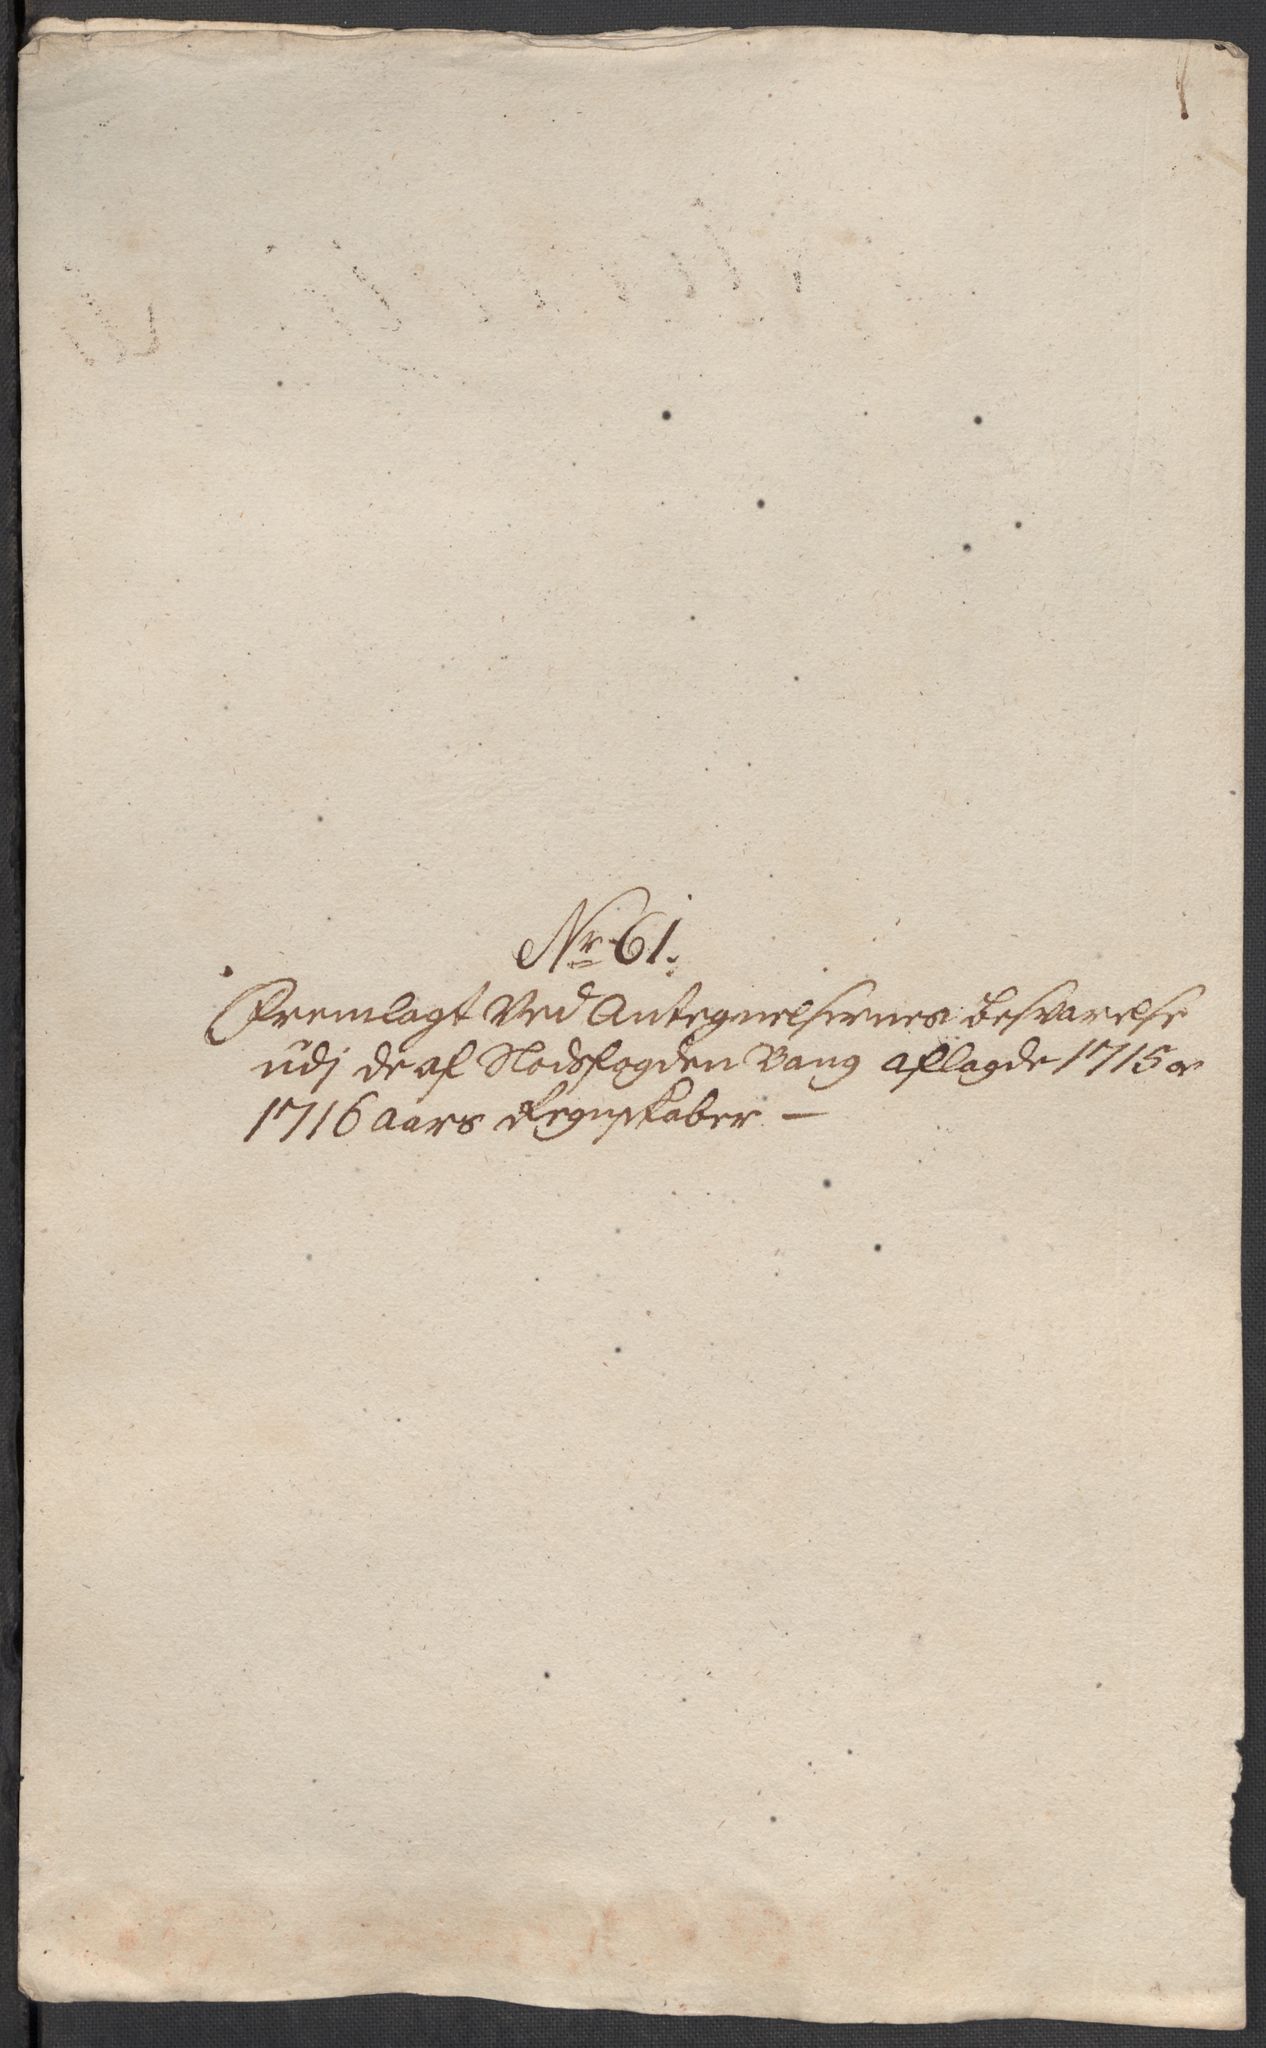 No 61.
Fremlagt Ved Antegnelsernes besvarelse
udj de af Fogden Bang aflagde 1715 og
1716 aars Regnskaber —